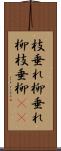 枝垂れ柳垂れ
柳枝垂柳